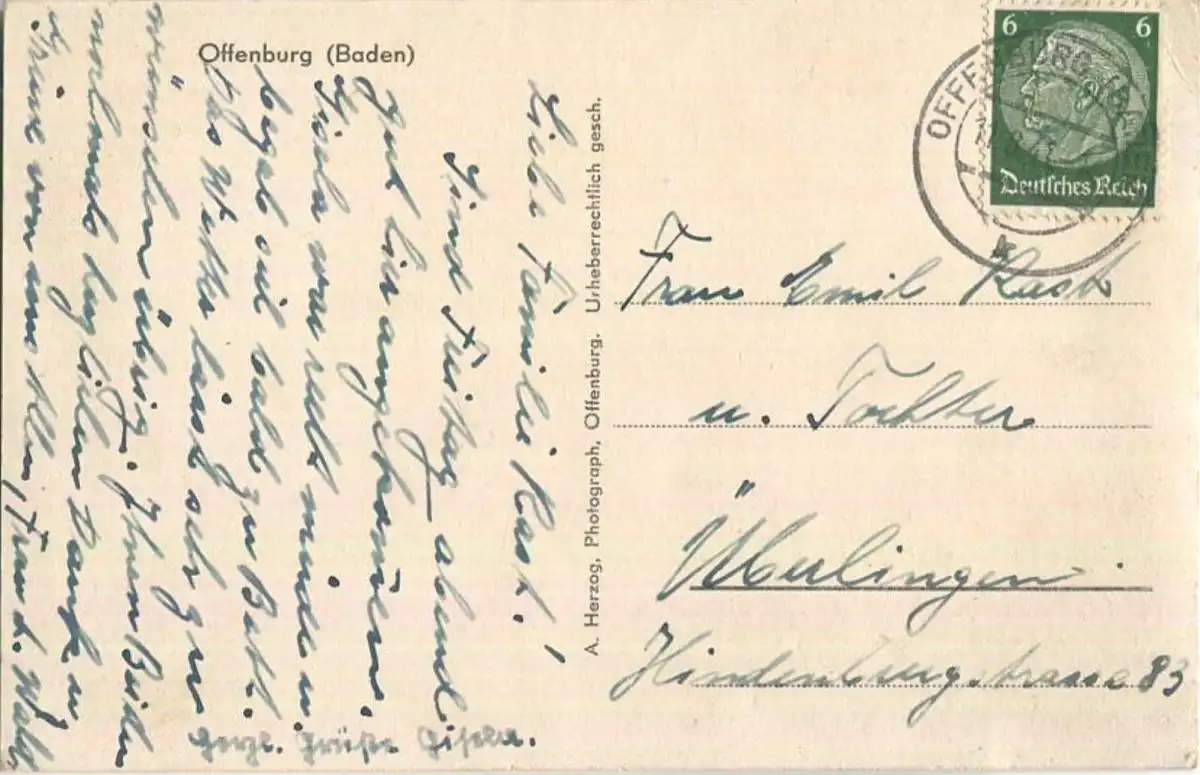 Offenburg (Baden)
Liebe Familie Rast!
Sind Freitag abend
gut hier angekommen.
Gisela war sehr müde u.
begab sich bald zu Bett.
Das Wetter lässt sehr zu
wünschen übrig. Ihnen Beiden
nochmals herzlichen Dank u
Grüße von uns allen, Frau L.
herzl. Grüße Gisela.
A. Herzog, Photograph, Offenburg. Urheberrechtlich gesch.
6 6
Deutsches Reich
OFFENBURG (BA
Frau Emil Rast
u. Tochter
Überlingen
Hindenburgstrasse 83